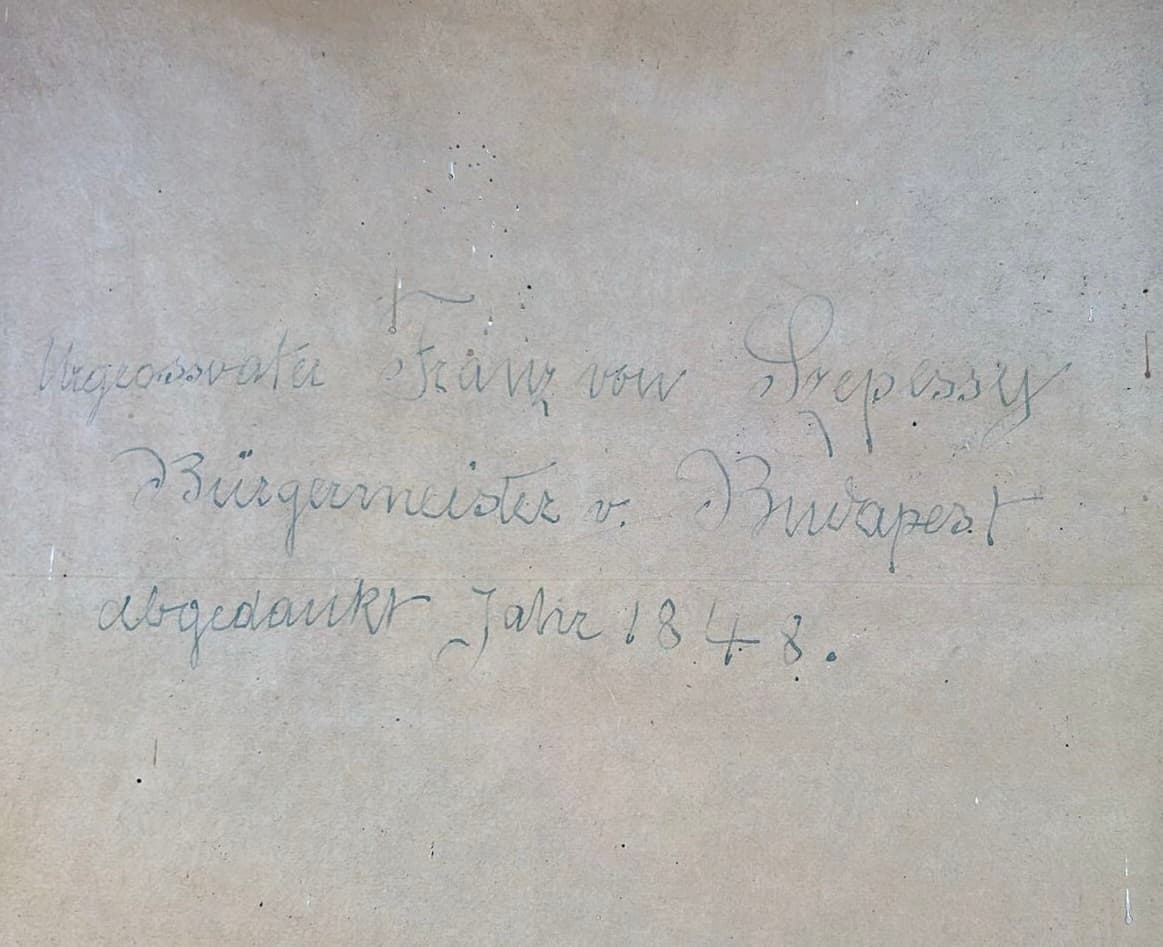 Urgrossvater Franz von Szepessy
Bürgermeister v. Budapest
abgedankt Jahr 1848.